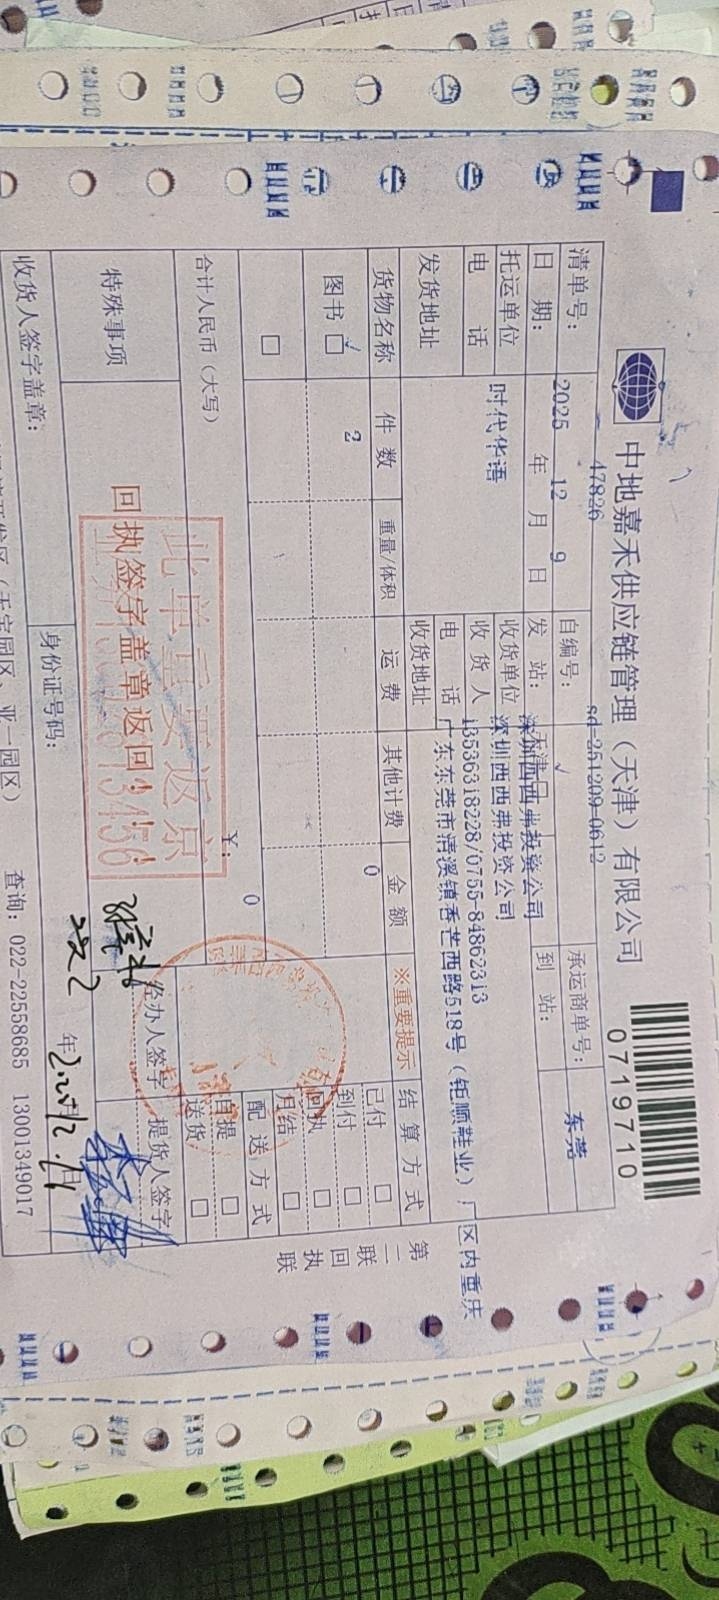 中地嘉禾供应链管理（天津）有限公司
0719710
清单号： 47826 自编号： sd-251209-0612 承运商单号：
日 期： 2025 年 12 月 9 日 发 站： 天津 到 站： 东莞
托运单位 时代华语 收货单位 深圳西西弗投资公司
深圳西西弗投资公司
电 话 收 货 人
电 话 13536318228/0755-84862313
发货地址 收货地址 广东东莞市清溪镇香芒西路518号（钜顺鞋业）厂区内重庆
货物名称 件 数 重量/体积 运 费 其他计费 金 额 ※重要提示 结 算 方 式
图书 2 0
已付
到付
回执
月结
配 送 方 式
自提
送货
合计人民币（大写） ￥： 0
特殊事项
此单重要返京
回执签字盖章返回！
经办人签字 提货人签字
收货人签字盖章： 身份证号码： 年 月
第二联 回执联
查询：022-22558685 13001349017